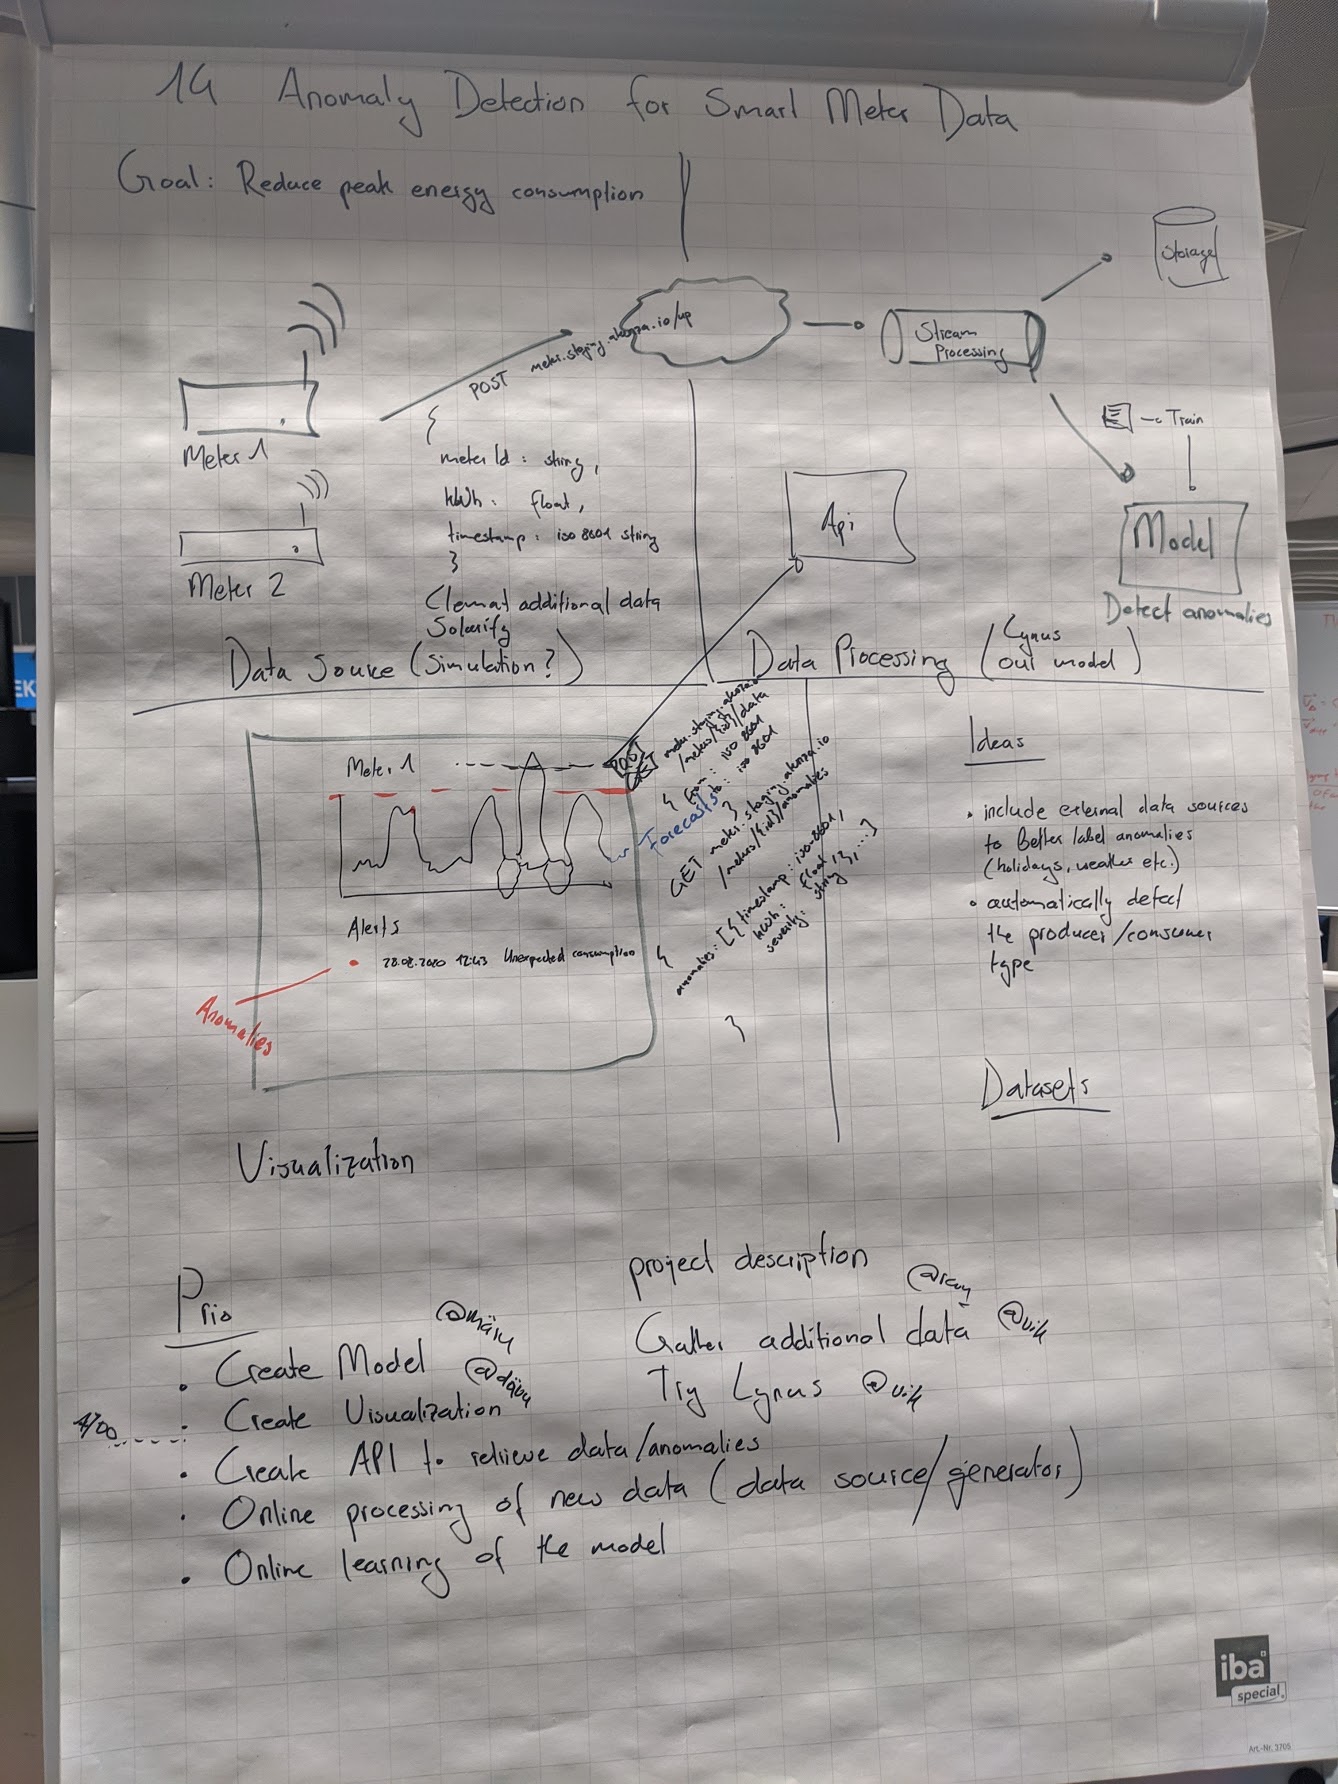 14 Anomaly Detection for Smart Meter Data
Goal: Reduce peak energy consumption
Storage
POST meter.staging.akenza.io/up
Stream
Processing
Train
Meter 1
{
meterId: string,
kWh: float,
timestamp: iso 8601 string
}
Api
Model
Detect anomalies
Meter 2
additional data
Solarify
Data Source (Simulation?)
Data Processing (Lynus
our model)
Meter 1
GET meter.staging.akenza.io
/meters/{id}/data
{ from: iso 8601
to: iso 8601
}
Forecast
GET meter.staging.akenza.io
/meters/{id}/anomalies
{
anomalies: [{timestamp: iso-8601,
kWh: float,
severity: string}, ...]
}
Alerts
28.08.2020 12:43 Unexpected consumption
Anomalies
Visualization
Ideas
• include external data sources
to better label anomalies
(holidays, weather etc.)
• automatically detect
the producer/consumer
type
Datasets
Prio
• Create Model
• Create Visualization
• Create API to retrieve data/anomalies
• Online processing of new data (data source/generator)
• Online learning of the model
project description
Gather additional data @vik
Try Lynus @vik
iba
special
Art.-Nr. 3705